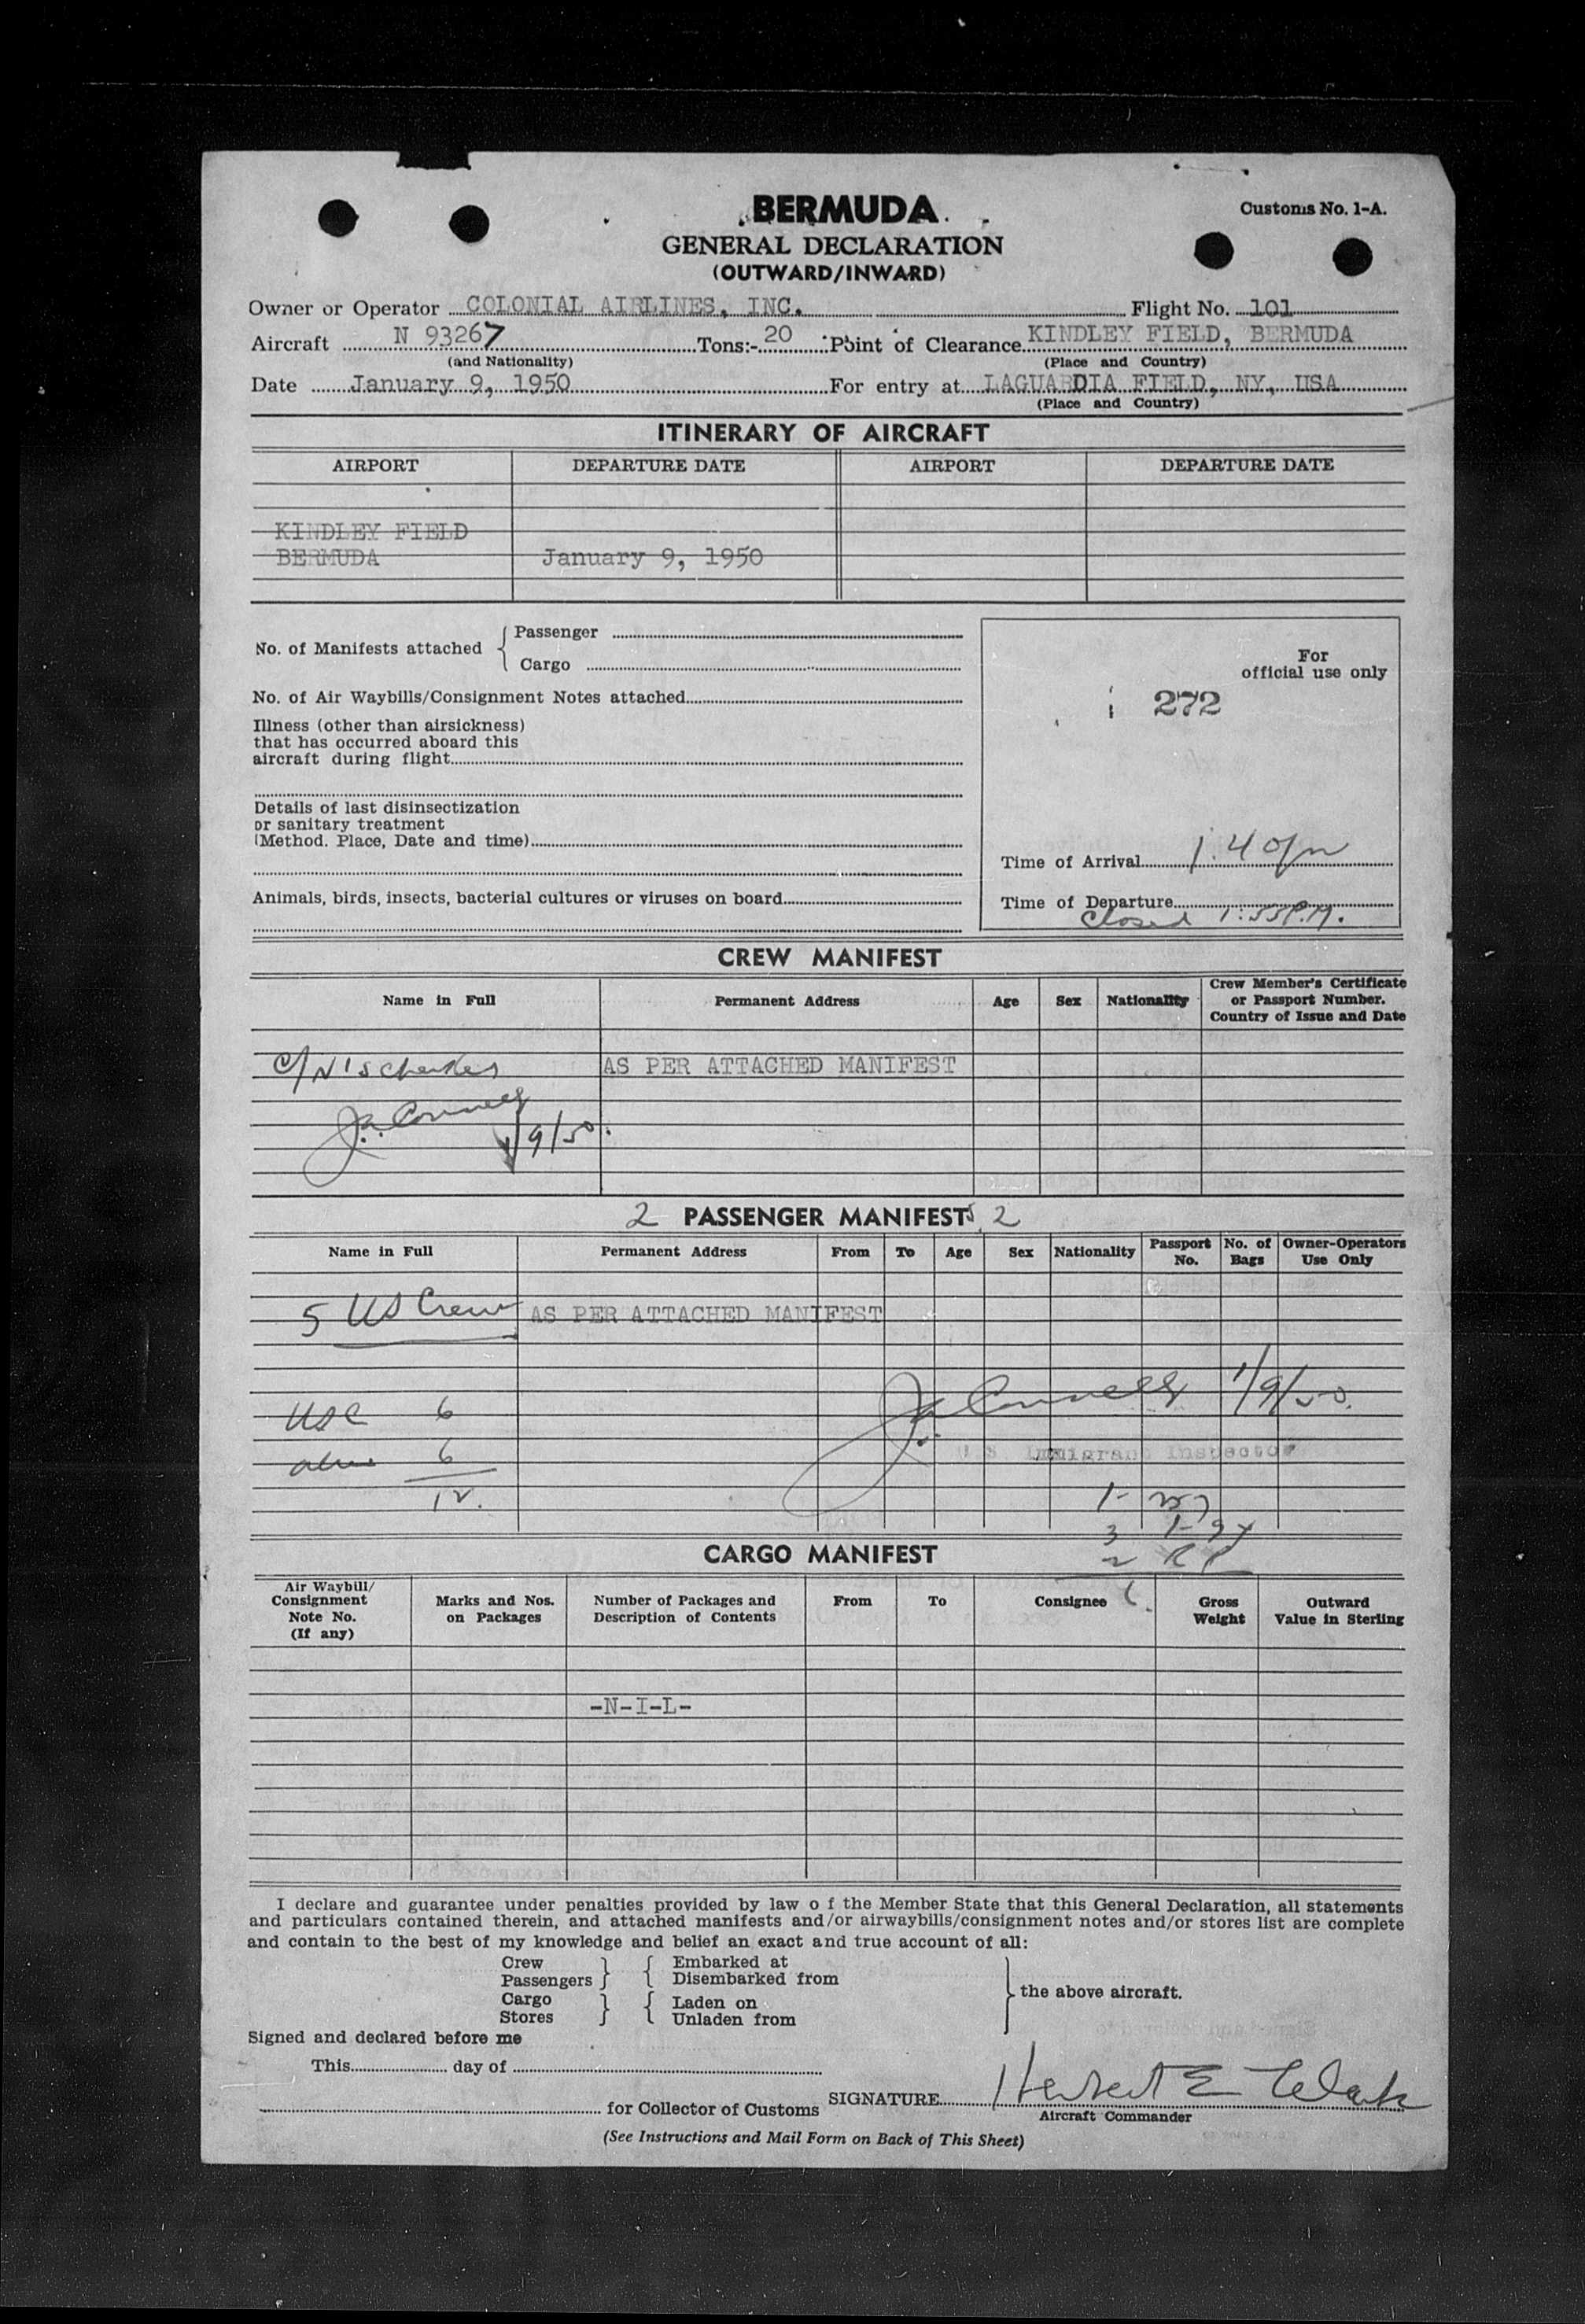 BERMUDA
Customs No. 1-A.
GENERAL DECLARATION
(OUTWARD/INWARD)
Owner or Operator COLONIAL AIRLINES, INC. Flight No. 101
Aircraft N 93267 Tons:- 20 Point of Clearance KINDLEY FIELD, BERMUDA
(and Nationality) (Place and Country)
Date January 9, 1950 For entry at LAGUARDIA FIELD, NY, USA
(Place and Country)
ITINERARY OF AIRCRAFT
AIRPORT DEPARTURE DATE AIRPORT DEPARTURE DATE
KINDLEY FIELD
BERMUDA January 9, 1950
No. of Manifests attached { Passenger
Cargo
No. of Air Waybills/Consignment Notes attached
Illness (other than airsickness)
that has occurred aboard this
aircraft during flight
Details of last disinsectization
or sanitary treatment
(Method. Place, Date and time)
Animals, birds, insects, bacterial cultures or viruses on board
For
official use only
272
Time of Arrival 1.40pm
Time of Departure
Closed 1:55P.M.
CREW MANIFEST
Name in Full Permanent Address Age Sex Nationality Crew Member's Certificate
or Passport Number.
Country of Issue and Date
AS PER ATTACHED MANIFEST
1/9/50.
2 PASSENGER MANIFESTS 2
Name in Full Permanent Address From To Age Sex Nationality Passport No. No. of Bags Owner-Operators Use Only
5 US Crew AS PER ATTACHED MANIFEST
1/9/50.
USC 6
U S Immigrant Inspector
6
12.
CARGO MANIFEST
Air Waybill/
Consignment
Note No.
(If any)
Marks and Nos.
on Packages
Number of Packages and
Description of Contents
From To Consignee
Gross
Weight
Outward
Value in Sterling
-N-I-L-
I declare and guarantee under penalties provided by law o f the Member State that this General Declaration, all statements
and particulars contained therein, and attached manifests and/or airwaybills/consignment notes and/or stores list are complete
and contain to the best of my knowledge and belief an exact and true account of all:
Crew } { Embarked at
Passengers } { Disembarked from
Cargo } { Laden on
Stores } { Unladen from
} the above aircraft.
Signed and declared before me
This day of
for Collector of Customs SIGNATURE Herbert E Clark
Aircraft Commander
(See Instructions and Mail Form on Back of This Sheet)